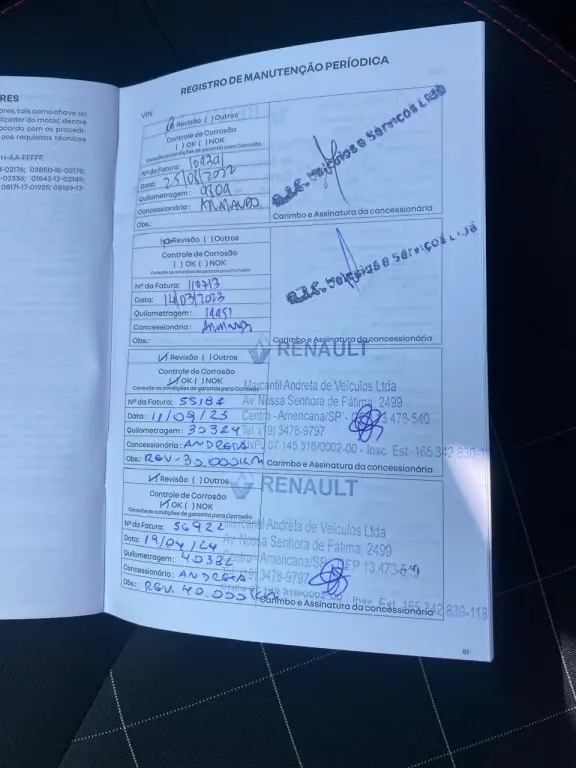 RES
ores, tais como chave ou
lizador do motor, dentre
acordo com os procedi-
aos requisitos técnicos
H-AA-FFFFF.
-02176; 03850-15-02176;
-02336; 01843-12-02149;
08171-17-01925; 08169-17-
REGISTRO DE MANUTENÇÃO PERÍODICA
VIN:
Revisão ( )Outros
Controle de Corrosão
( )OK ( )NOK
Consulte as condições de garantia para Corrosão
Nº da Fatura:
Data: 25/08/2022
Quilometragem: 9809
Concessionária:
Obs.:
Veiculos e Serviços Ltda
Carimbo e Assinatura da concessionária
Revisão ( )Outros
Controle de Corrosão
( )OK ( )NOK
Consulte as condições de garantia para Corrosão
Nº da Fatura: 110713
Data: 14/03/2023
Quilometragem:
Concessionária:
Obs.:
Veiculos e Serviços Ltda
Carimbo e Assinatura da concessionária
RENAULT
Revisão ( )Outros
Controle de Corrosão
OK ( )NOK
Consulte as condições de garantia para Corrosão
Mercantil Andreta de Veículos Ltda
Nº da Fatura: 55182
Av. Nossa Senhora de Fátima, 2499
Data: 11/09/23
Centro - Americana/SP - CEP 13 478-540
Quilometragem: 30324
Tel. (19) 3478-9797
Concessionária: ANDRETA
CNPJ 07 145 316/0002-00 - Insc. Est. 165 342 830 118
Obs.: REV. 30.000KM
Carimbo e Assinatura da concessionária
RENAULT
Revisão ( )Outros
Controle de Corrosão
OK ( )NOK
Consulte as condições de garantia para Corrosão
Mercantil Andreta de Veículos Ltda
Nº da Fatura: 56922
Av. Nossa Senhora de Fátima, 2499
Data: 19/04/24
Centro - Americana/SP - CEP 13 478-540
Quilometragem: 40382
3478-9797
Concessionária: ANDRETA
316/0002-00 - Insc. Est. 165 342 830-118
Obs.: REV. 40.000KM
Carimbo e Assinatura da concessionária
51